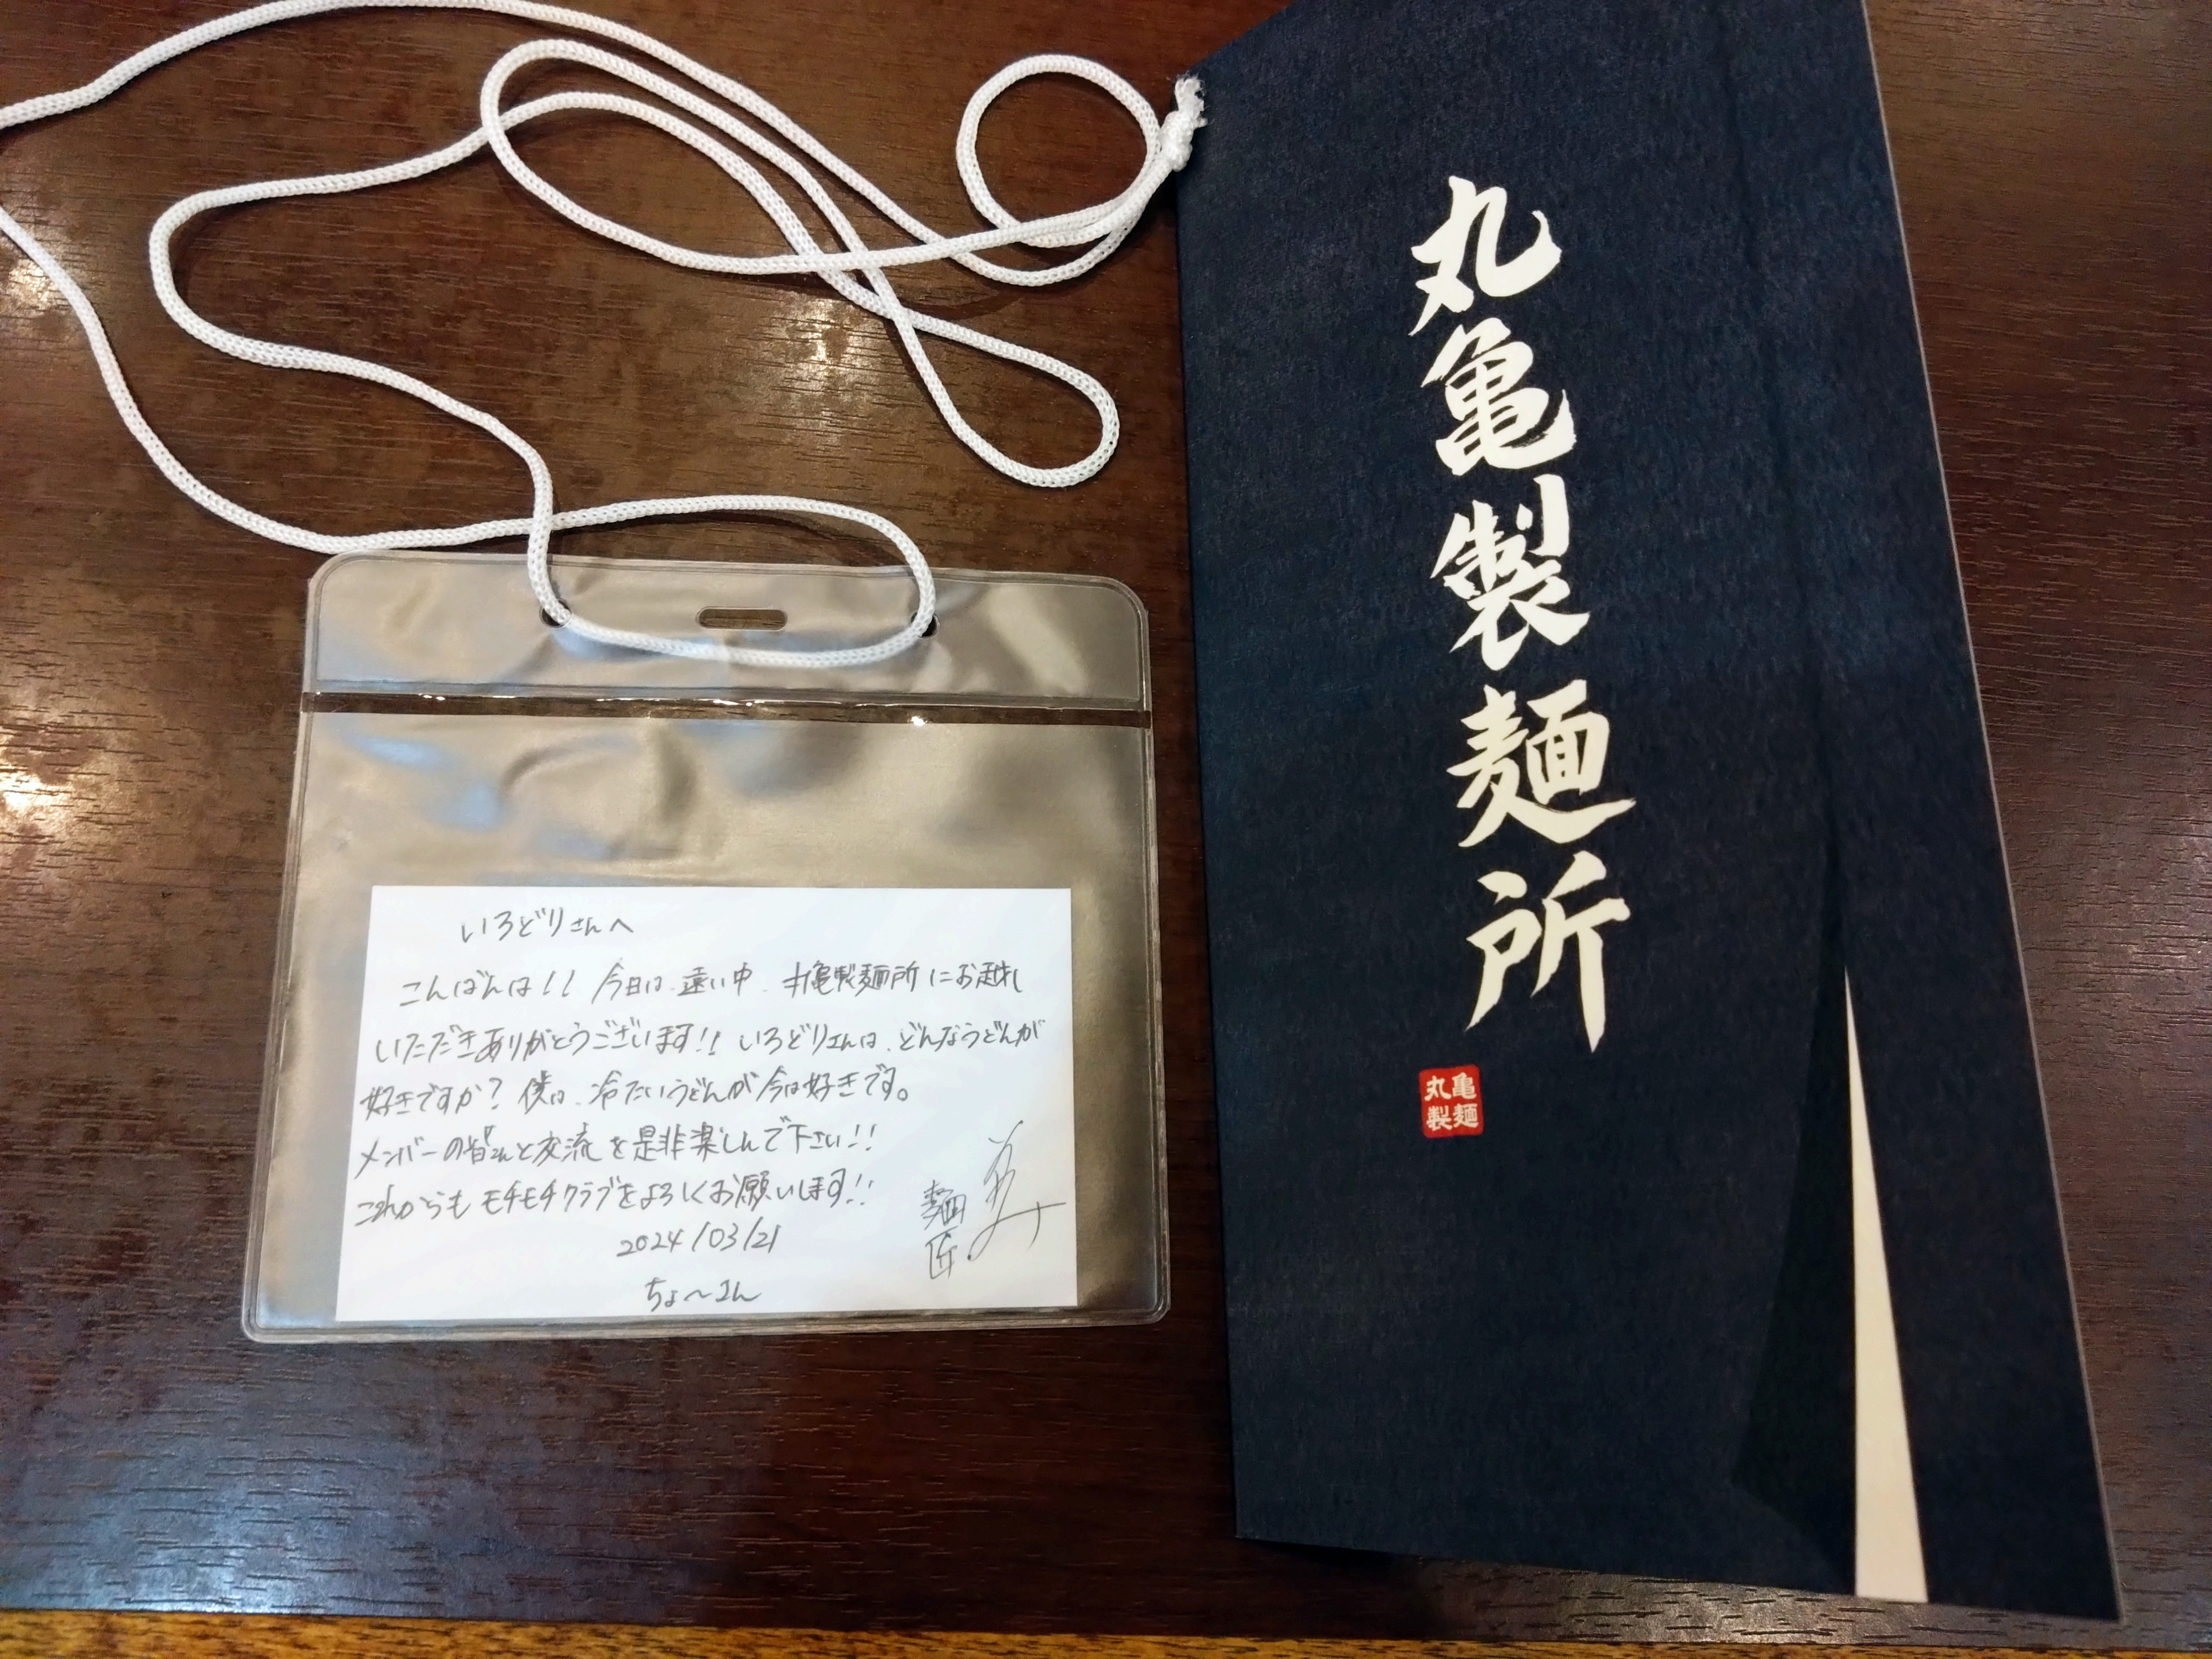 いろどりさんへ
こんばんは!! 今日は、遠い中、丸亀製麺所にお越し
いただきありがとうございます!! いろどりさんは、どんなうどんが
好きですか? 僕は、冷たいうどんが今は好きです。
メンバーの皆さんと交流を是非楽しんで下さい!!
これからもモチモチクラブをよろしくお願いします!!
2024/03/21
ちょ〜さん
麺匠
丸亀製麺所
丸亀製麺